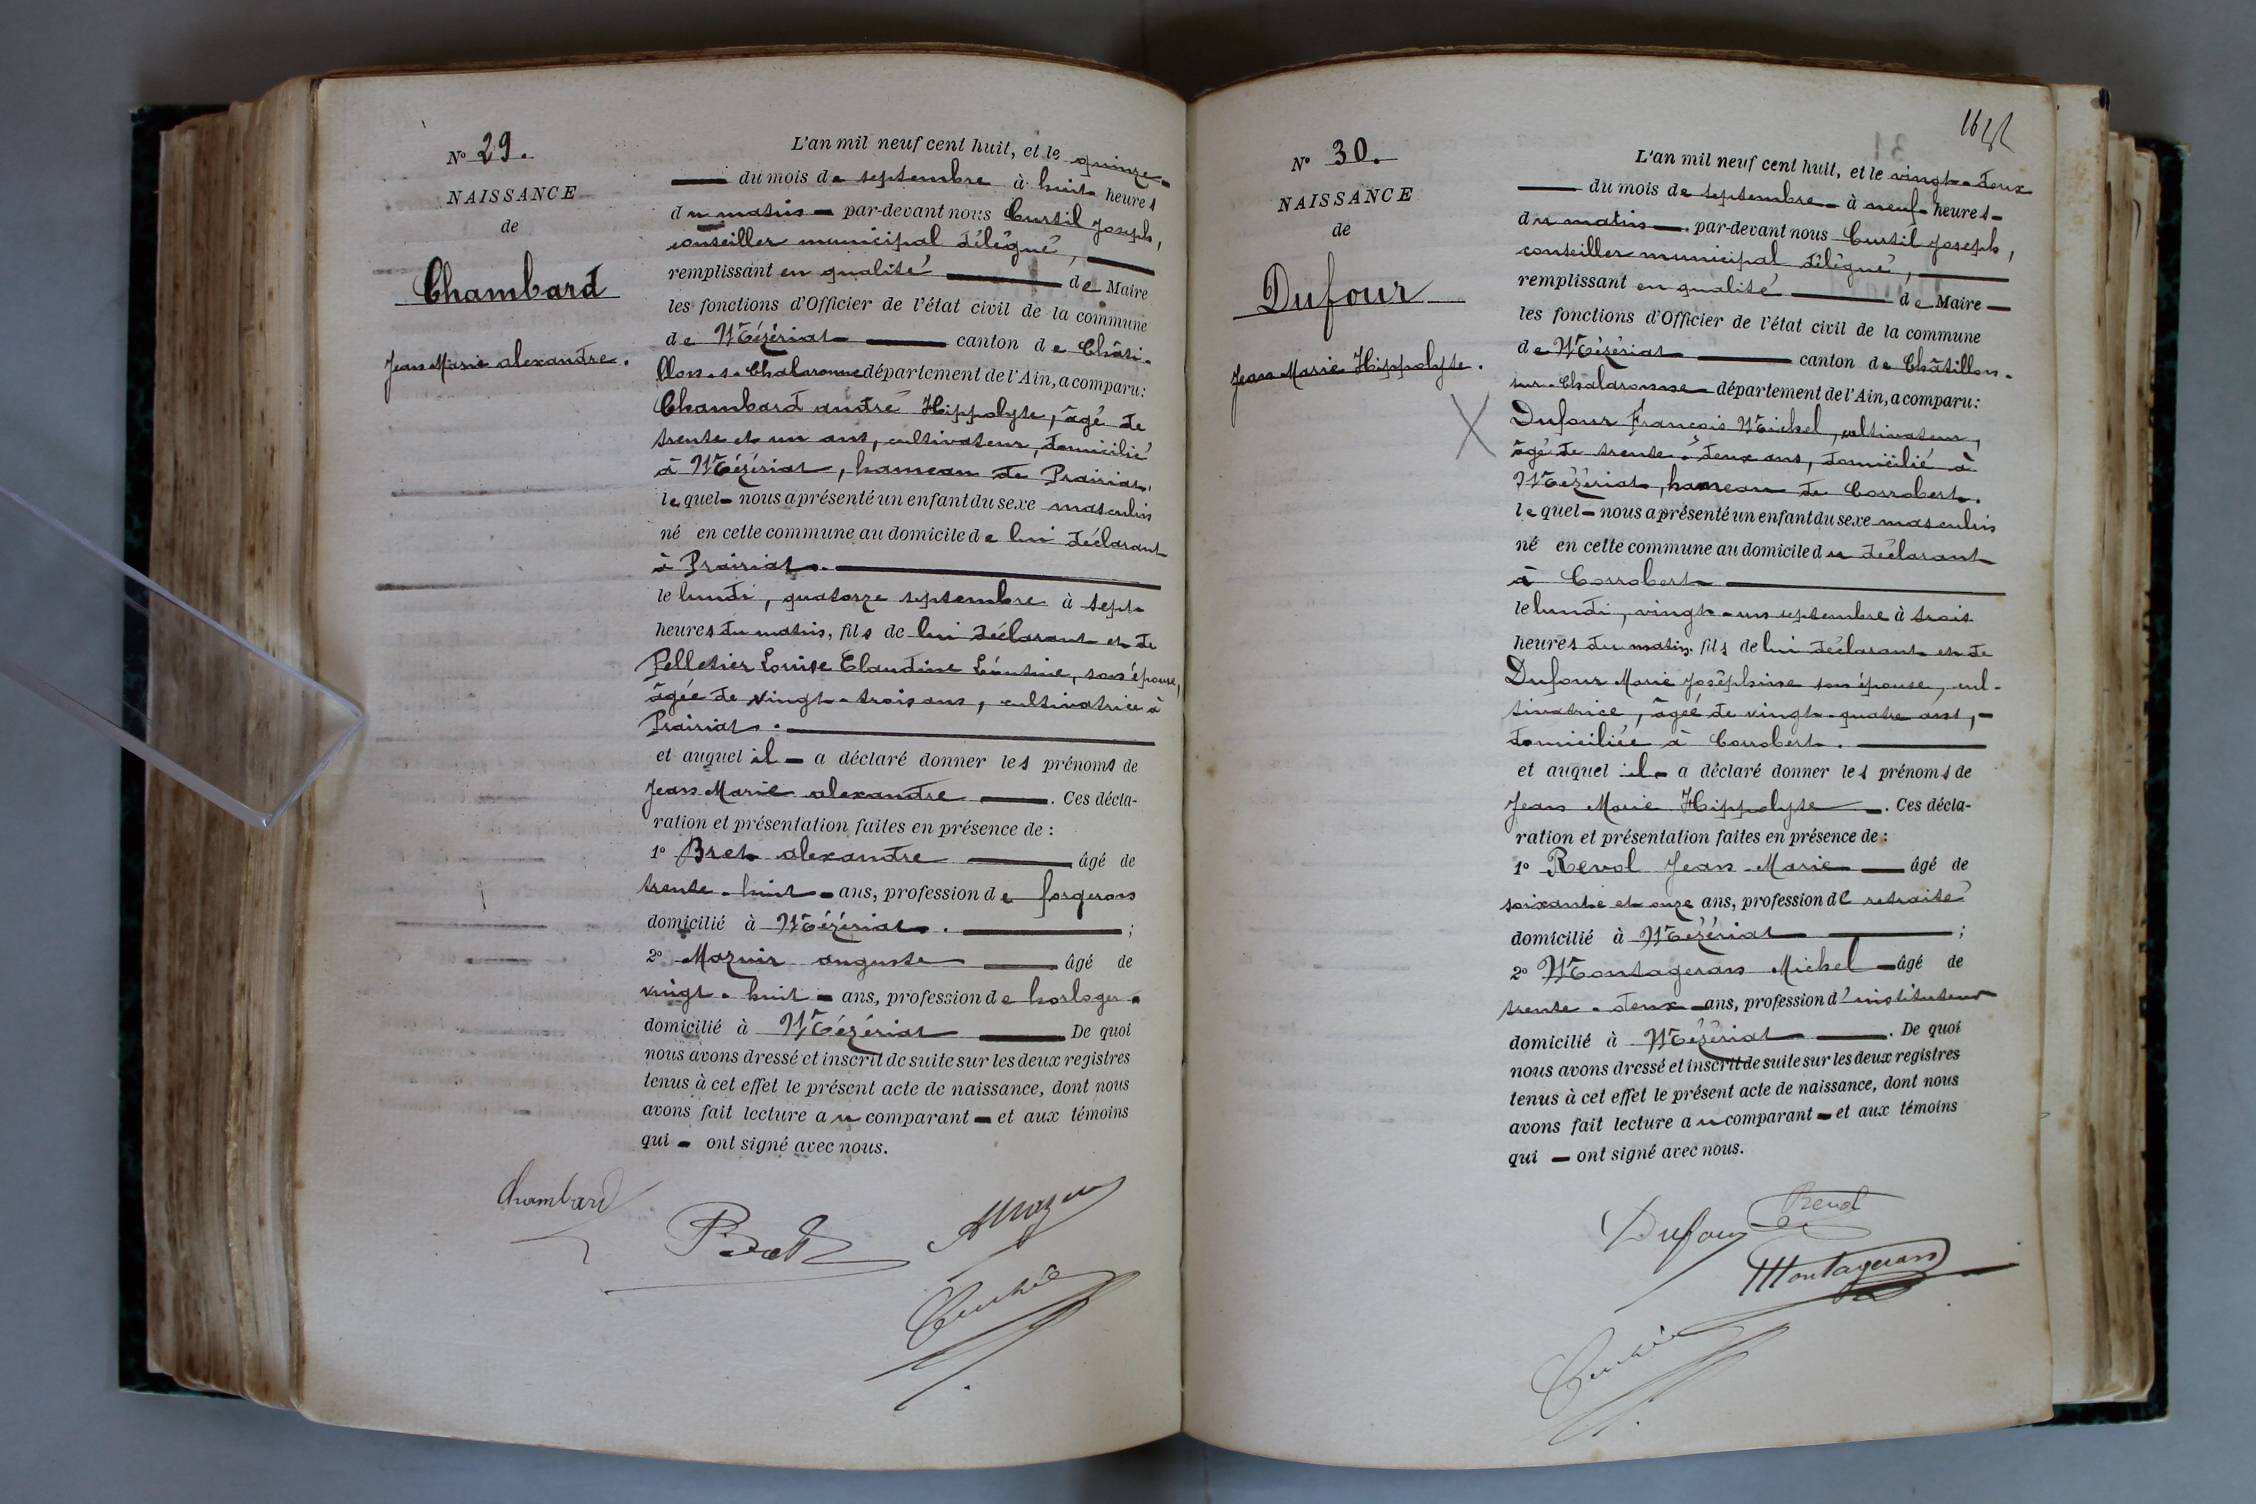 Nº 29.
NAISSANCE
de
Chambard
Jean Marie alexandre.
L'an mil neuf cent huit, et le quinze
du mois de septembre à huit heures
du matin par-devant nous Curtil Joseph,
conseiller municipal délégué,
remplissant en qualité de Maire
les fonctions d'Officier de l'état civil de la commune
de Mézériat canton de Châti-
llon-s-Chalaronne département de l'Ain, a comparu:
Chambard andré Hippolyte, âgé de
trente et un ans, cultivateur, domicilié
à Mézériat, hameau de Prairiat,
lequel nous a présenté un enfant du sexe masculin
né en cette commune au domicile de lui déclarant
à Prairiat.
le lundi, quatorze septembre à sept
heures du matin, fils de lui déclarant et de
Pelletier Louise Claudine Léontine, son épouse,
âgée de vingt-trois ans, cultivatrice à
Prairiat.
et auquel il a déclaré donner les prénoms de
Jean Marie alexandre. Ces décla-
ration et présentation faites en présence de :
1º Bret alexandre âgé de
trente-huit ans, profession de forgeron
domicilié à Mézériat. ;
2º Mazuir auguste âgé de
vingt-huit ans, profession de horloger
domicilié à Mézériat De quoi
nous avons dressé et inscrit de suite sur les deux registres
tenus à cet effet le présent acte de naissance, dont nous
avons fait lecture au comparant et aux témoins
qui ont signé avec nous.
Chambard
Bret
Nº 30.
NAISSANCE
de
Dufour
Jean Marie Hippolyte.
L'an mil neuf cent huit, et le vingt-deux
du mois de septembre à neuf heures
du matin par-devant nous Curtil Joseph,
conseiller municipal délégué,
remplissant en qualité de Maire
les fonctions d'Officier de l'état civil de la commune
de Mézériat canton de Châtillon-
sur-Chalaronne département de l'Ain, a comparu:
Dufour François Michel, cultivateur,
âgé de trente-deux ans, domicilié à
Mézériat, hameau de Corrobert.
lequel nous a présenté un enfant du sexe masculin
né en cette commune au domicile du déclarant
à Corrobert
le lundi, vingt-un septembre à trois
heures du matin, fils de lui déclarant et de
Dufour Marie Joséphine son épouse, cul-
tivatrice, âgée de vingt-quatre ans,
domiciliée à Corrobert.
et auquel il a déclaré donner les prénoms de
Jean Marie Hippolyte. Ces décla-
ration et présentation faites en présence de :
1º Revol Jean-Marie âgé de
soixante et onze ans, profession de retraité
domicilié à Mézériat ;
2º Montageran Michel âgé de
trente-deux ans, profession d'instituteur
domicilié à Mézériat. De quoi
nous avons dressé et inscrit de suite sur les deux registres
tenus à cet effet le présent acte de naissance, dont nous
avons fait lecture au comparant et aux témoins
qui ont signé avec nous.
Dufour Revol
Montageran